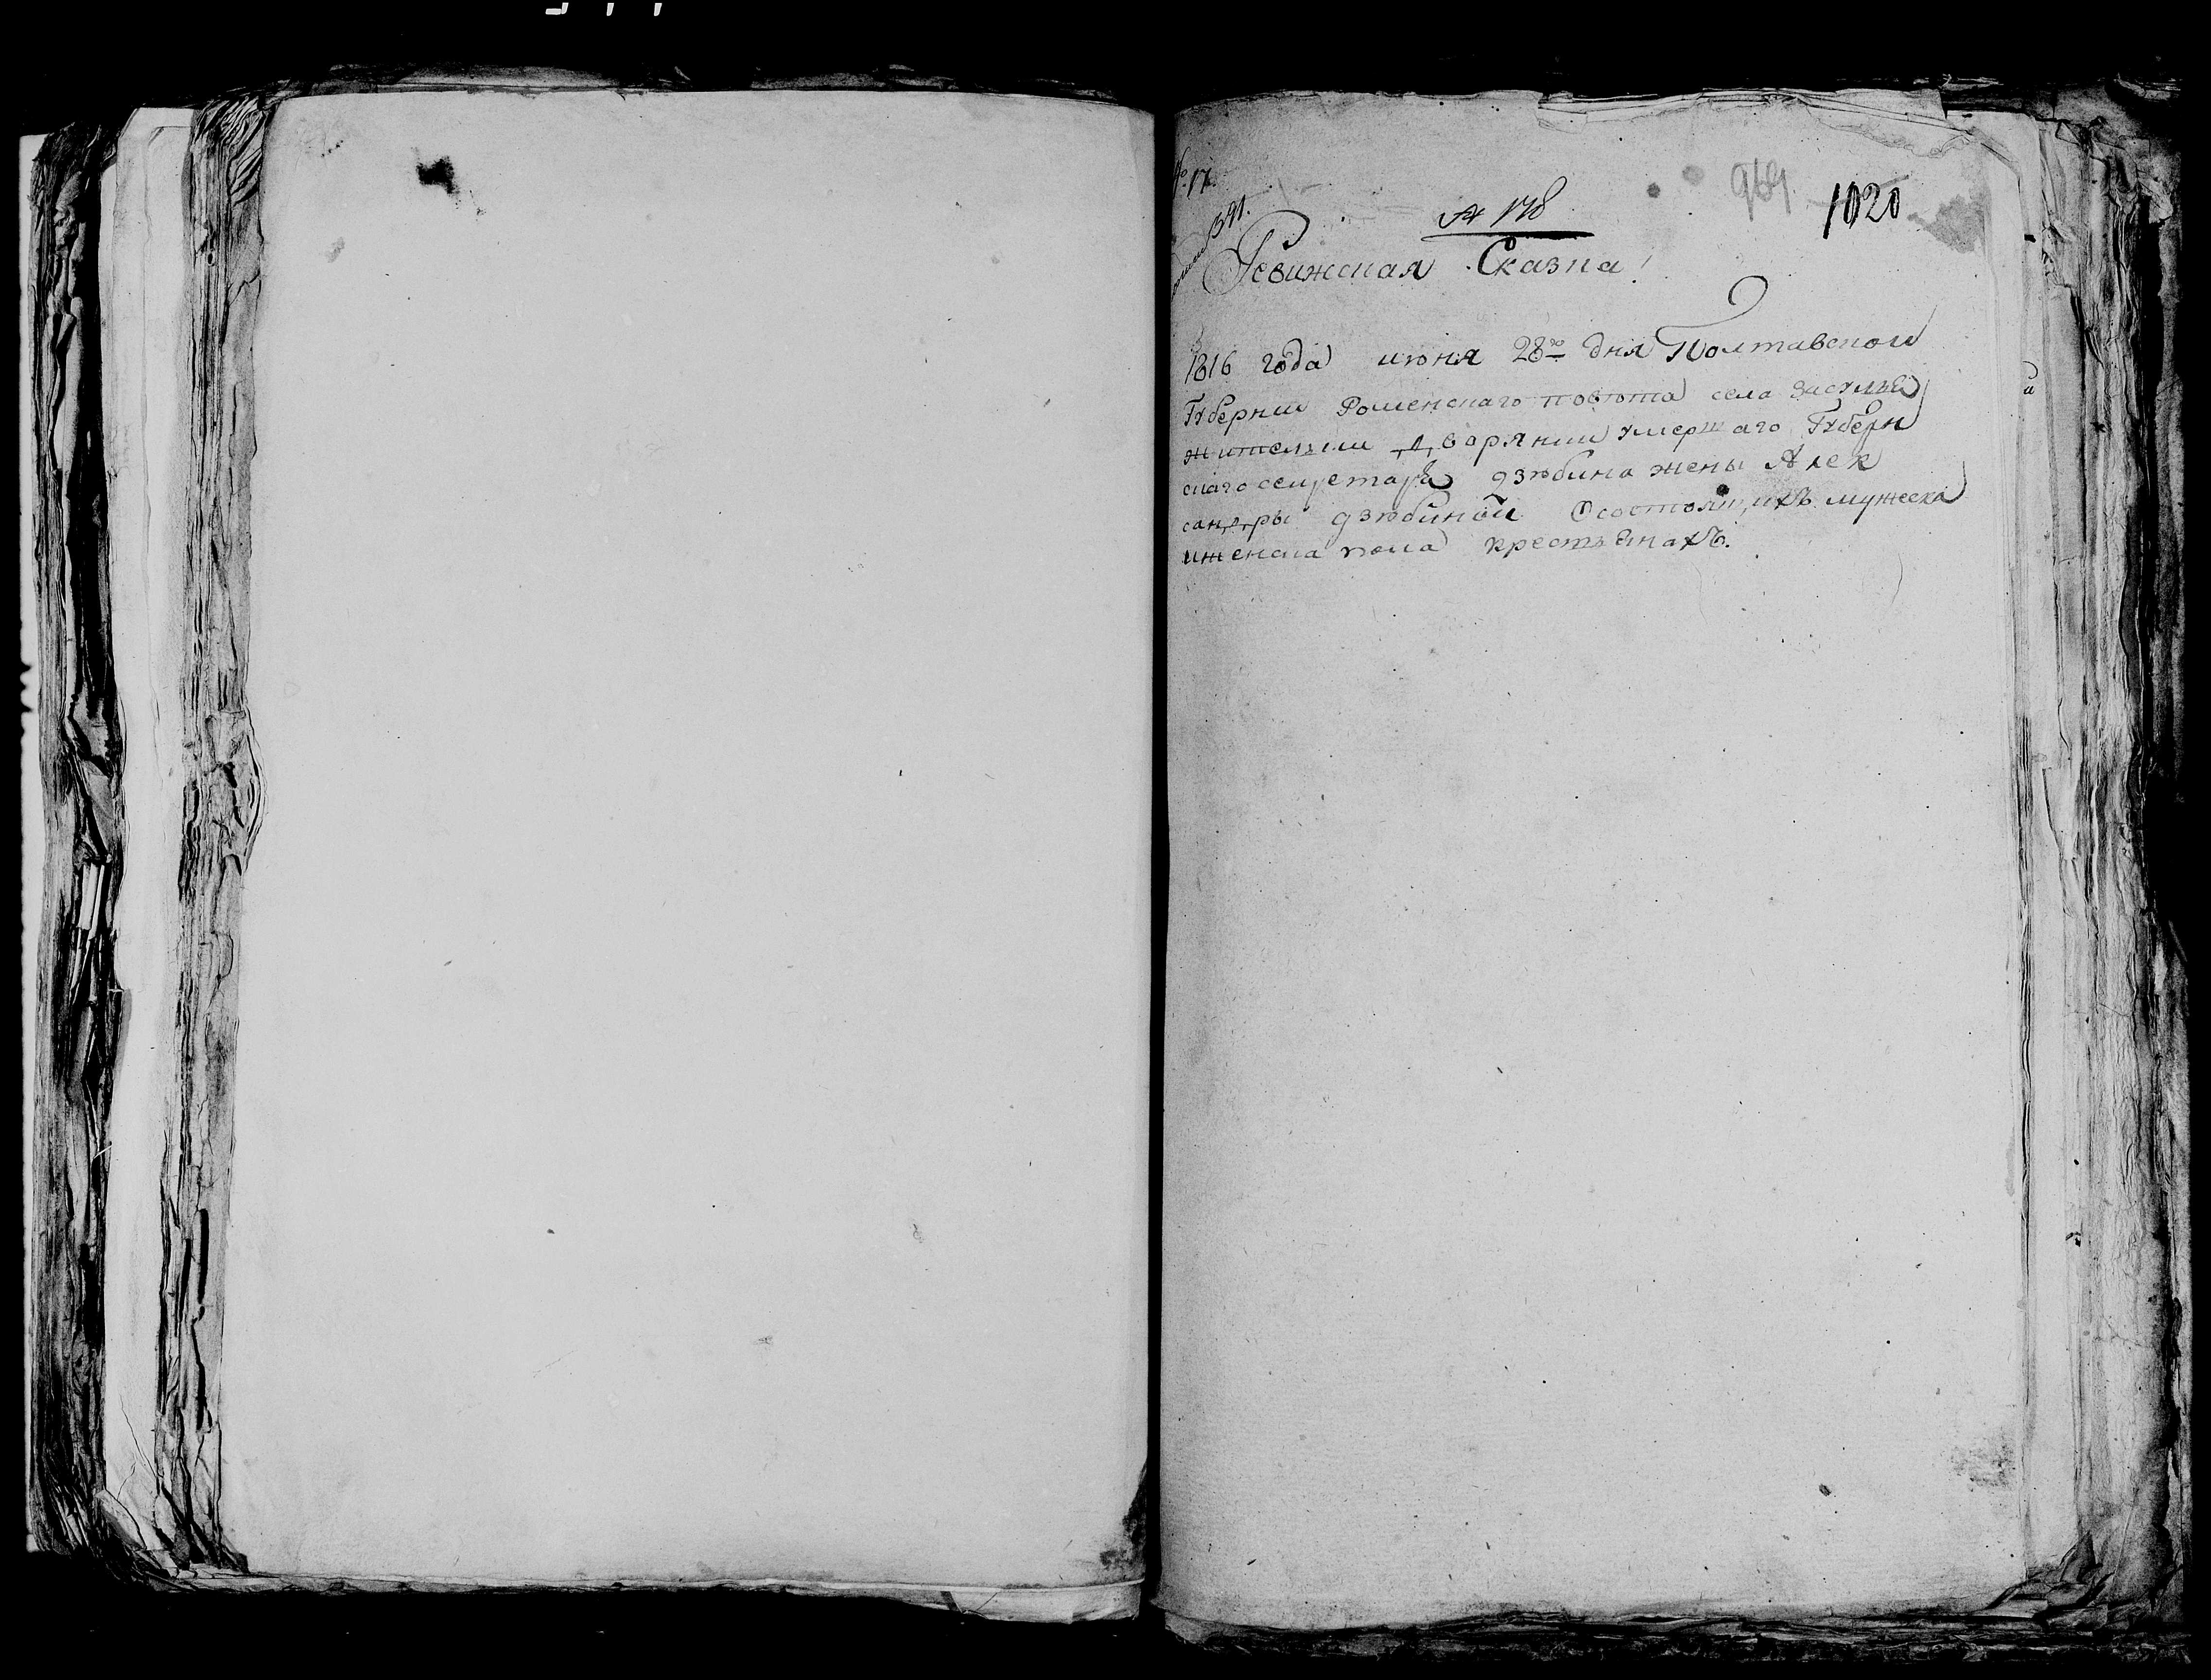 № 17.
391.
№ 178
969
1020
Ревижская Сказка
1816 года июня 28го дня Полтавской
Губернии Роменскаго повѣта села Засулья
жительки дворянки умершаго Губерн
скаго секретаря Дзюбина жены Алек
сандры Дзюбиной Осостоящихъ мужеска
иженска пола крестьянахъ.